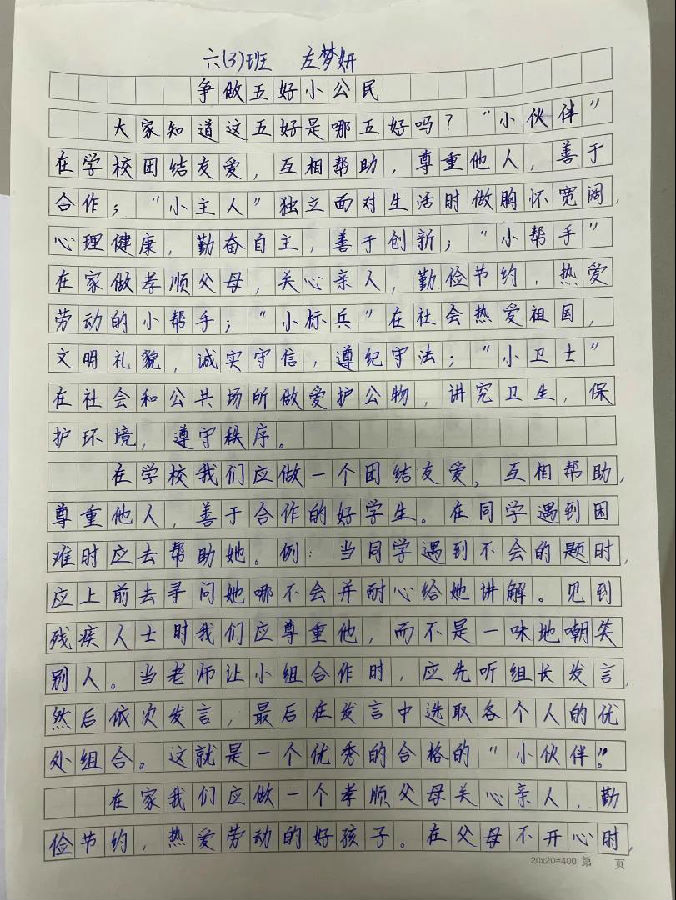 六(3)班 左梦妍
争做五好小公民
大家知道这五好是哪五好吗？“小伙伴”
在学校团结友爱，互相帮助，尊重他人，善于
合作；“小主人”独立面对生活时做胸怀宽阔，
心理健康，勤奋自主，善于创新；“小帮手”
在家做孝顺父母，关心亲人，勤俭节约，热爱
劳动的小帮手；“小标兵”在社会热爱祖国，
文明礼貌，诚实守信，遵纪守法；“小卫士”
在社会和公共场所做爱护公物，讲究卫生，保
护环境，遵守秩序。
在学校我们应做一个团结友爱，互相帮助，
尊重他人，善于合作的好学生。在同学遇到困
难时应去帮助她。例：当同学遇到不会的题时，
应上前去寻问她哪不会并耐心给她讲解。见到
残疾人士时我们应尊重他，而不是一味地嘲笑
别人。当老师让小组合作时，应先听组长发言，
然后依次发言，最后在发言中选取各个人的优
处组合。这就是一个优秀的合格的“小伙伴”。
在家我们应做一个孝顺父母关心亲人，勤
俭节约，热爱劳动的好孩子。在父母不开心时，
20x20=400 第 页